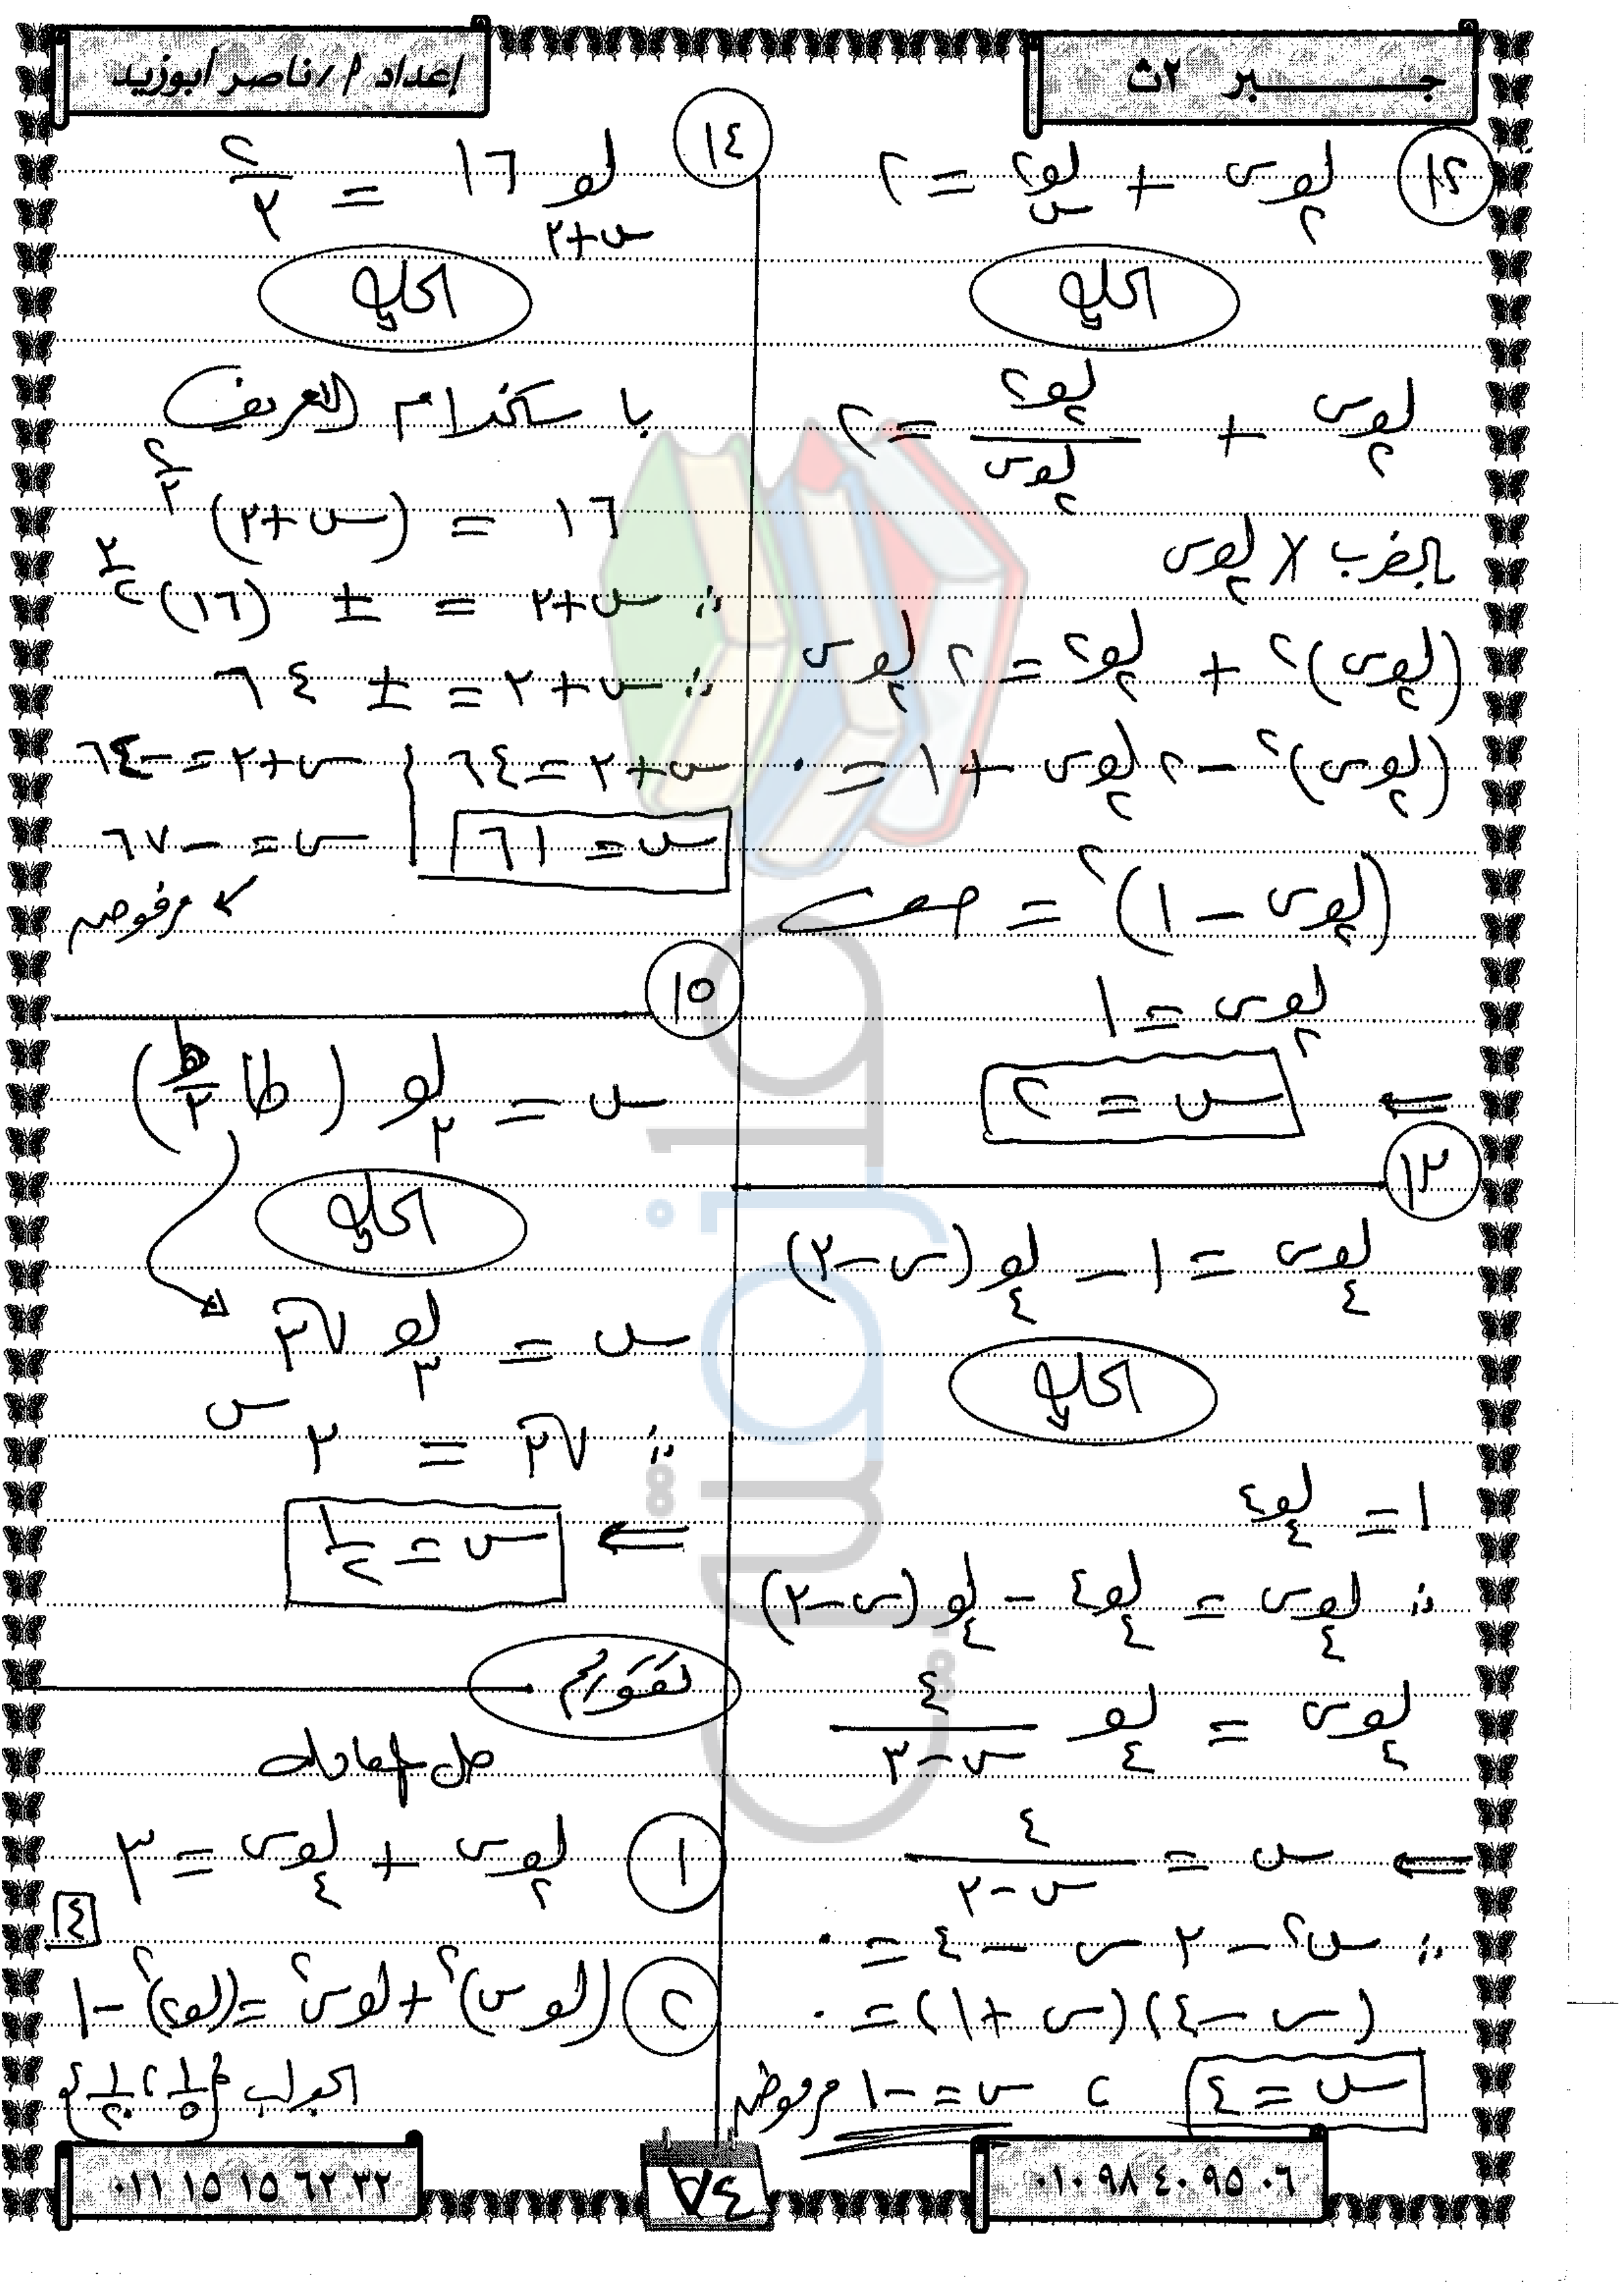 جـــــبر ٢ث
إعداد أ/ناصر أبوزيد
١٢ لو٢ س + لوس ٢ = ٢
الحل
لو٢ س + لو٢ ٢ / لو٢ س = ٢
بالضرب × لو٢ س
(لو٢ س)٢ + لو٢ ٢ = ٢ لو٢ س
(لو٢ س)٢ – ٢ لو٢ س + ١ = ٠
(لو٢ س – ١)٢ = صفر
لو٢ س = ١
⇐ س = ٢
١٣
لو٤ س = ١ – لو٤ (س–٣)
الحل
١ = لو٤ ٤
∴ لو٤ س = لو٤ ٤ – لو٤ (س–٣)
لو٤ س = لو٤ ٤/(س–٣)
⇐ س = ٤/(س–٣)
∴ س٢ – ٣ س – ٤ = ٠
(س – ٤)(س + ١) = ٠
س = ٤ ، س = –١ مرفوض
١٤ لو(س+٣) ١٦ = ٢/٣
الحل
باستخدام التعريف
١٦ = (س+٣)^٢/٣
∴ س+٣ = ± (١٦)^٣/٢
∴ س+٣ = ± ٦٤
س+٣ = ٦٤ | س+٣ = –٦٤
س = ٦١ | س = –٦٧
مرفوض
١٥
س = لو٣ (طا ط/٣)
الحل
س = لو٣ √٣
∴ √٣ = ٣^س
⇐ س = ١/٢
تقويم
حل المعادلة
١ لو٢ س + لو٤ س = ٣
٤
٢ (لو س)٢ + لو س٢ = (لو٢)٢ – ١
الجواب {١/٥ ، ١/٢٠}
٠١٠ ٩٨ ٤٠ ٩٥ ٠٦
٠١١ ١٥ ١٥ ٦٢ ٣٢